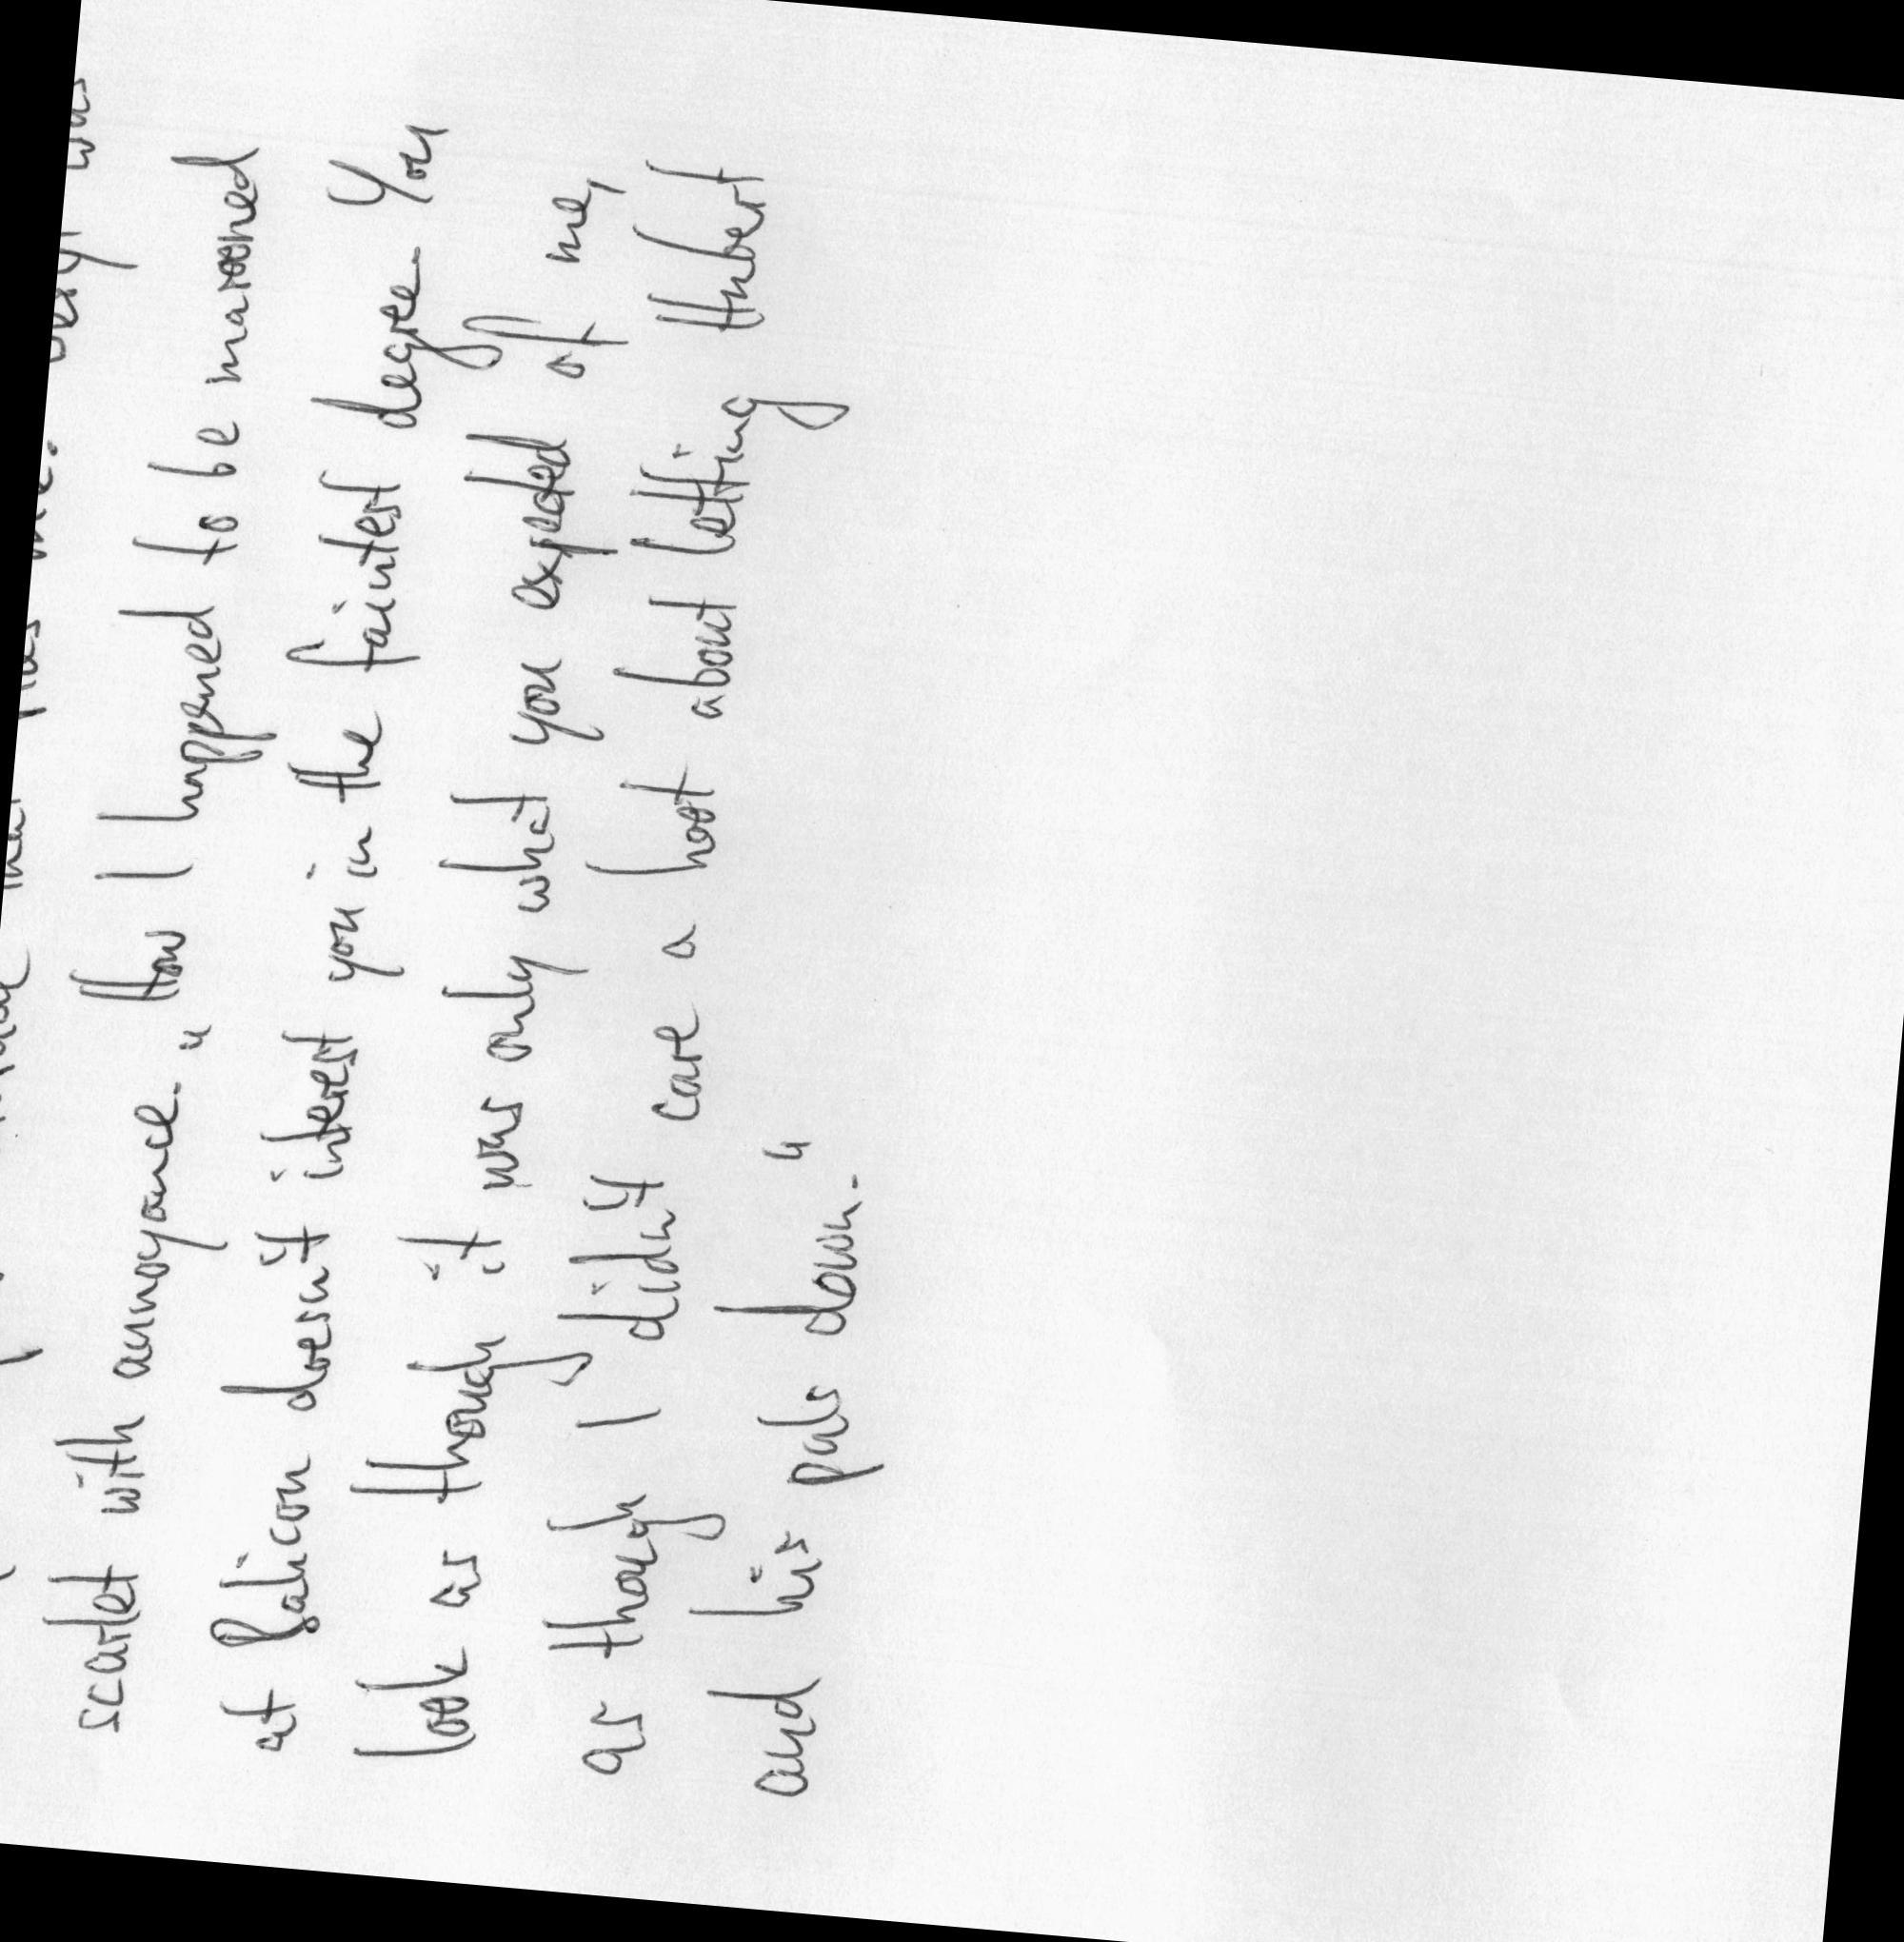 was
scarlet with annoyance. "How I happened to be marooned
at Falicon doesn't interest you in the faintest degree. You
look as though it was only what you expected of me,
as though I didn't care a hoot about letting Hubert
and his pals down."